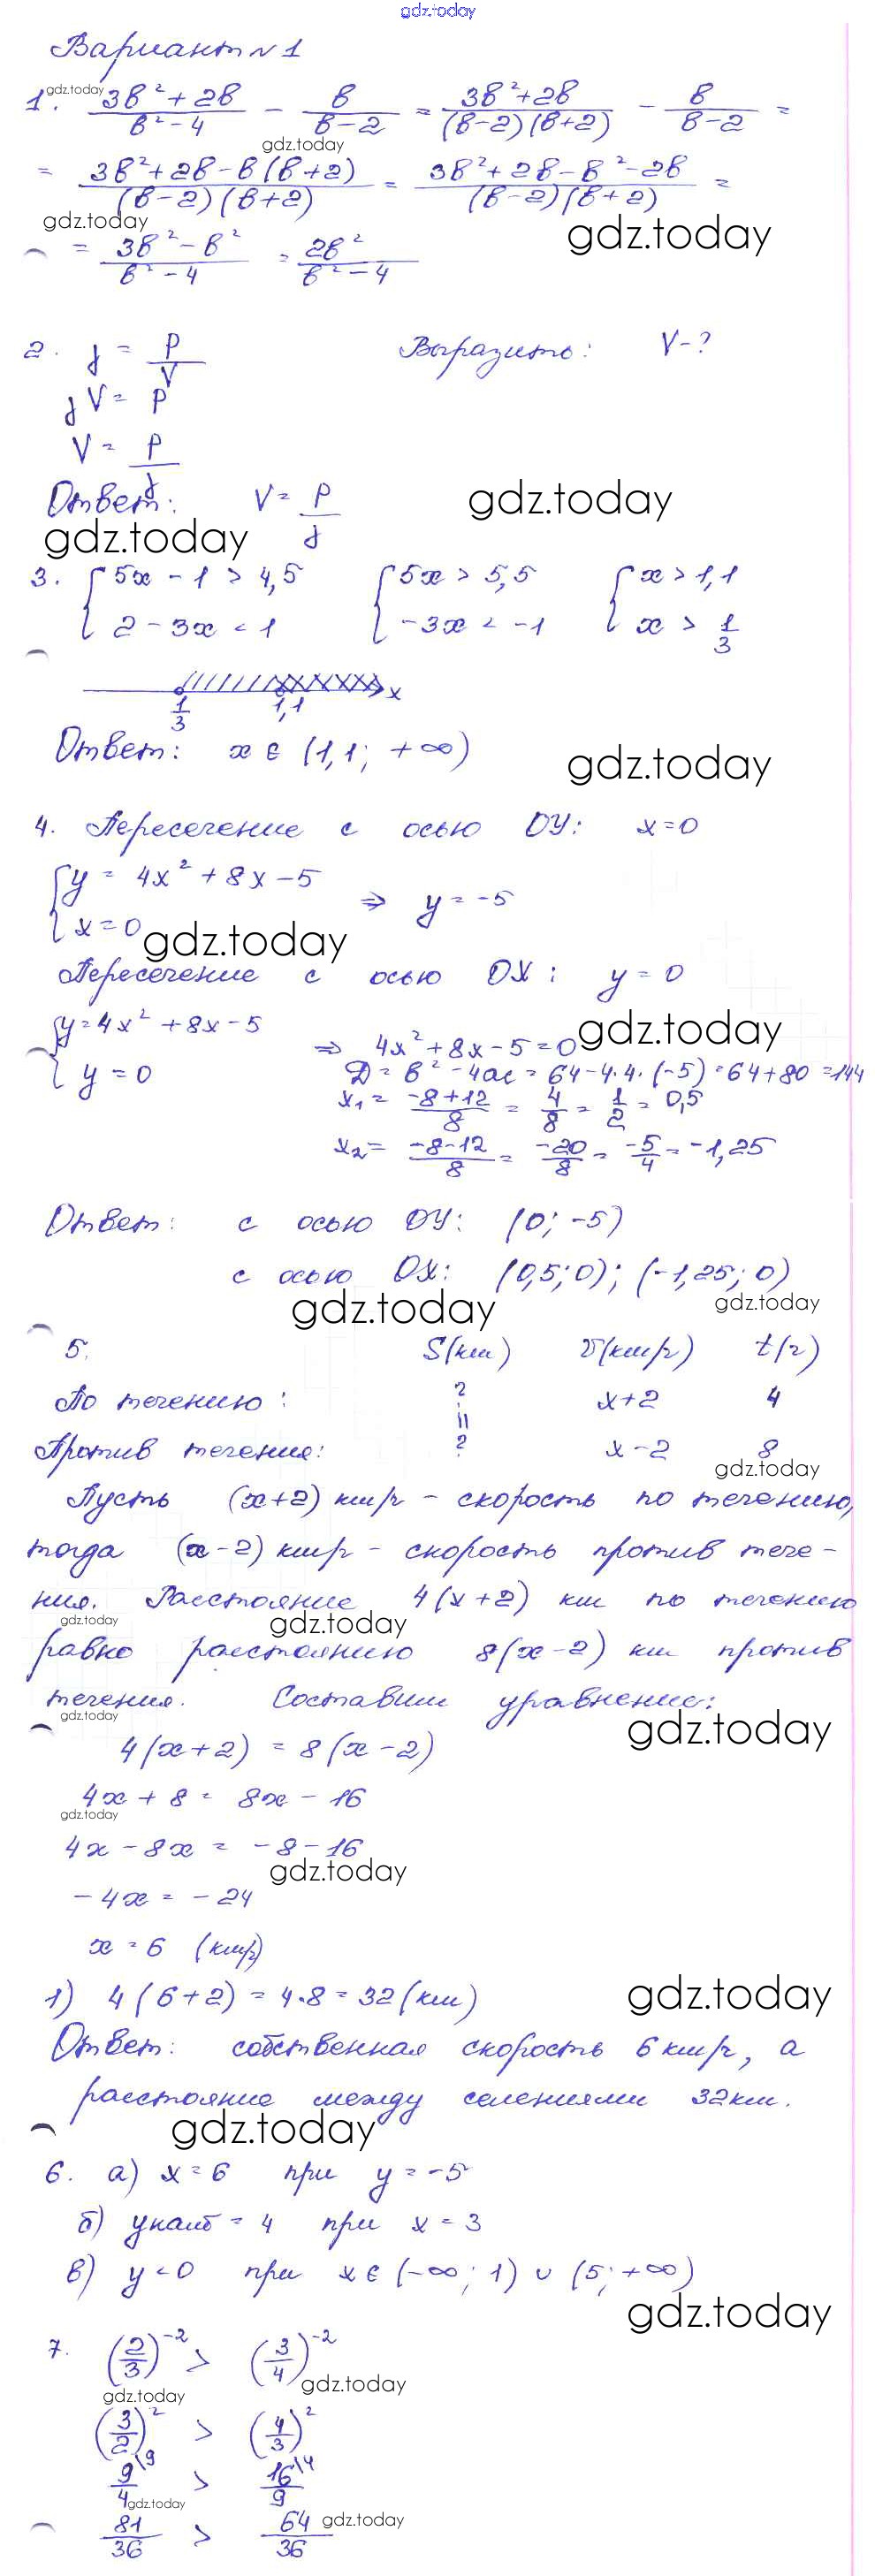 gdz.today
Вариант N1
gdz.today
1. (3в²+2в)/(в²-4) - в/(в-2) = (3в²+2в)/((в-2)(в+2)) - в/(в-2) =
gdz.today
= (3в²+2в-в(в+2))/((в-2)(в+2)) = (3в²+2в-в²-2в)/((в-2)(в+2)) =
gdz.today gdz.today
= (3в²-в²)/(в²-4) = 2в²/(в²-4)
2. j = P/V Выразить: V-?
jV = P
V = P/j
Ответ: V = P/j gdz.today
gdz.today
3. { 5x-1 > 4,5 { 5x > 5,5 { x > 1,1
2-3x < 1 -3x < -1 x > 1/3
1/3 1,1 x
Ответ: x ∈ (1,1; +∞) gdz.today
4. Пересечение с осью ОУ: x=0
{ y = 4x²+8x-5 ⇒ y = -5
x=0 gdz.today
Пересечение с осью ОХ: y=0
{ y=4x²+8x-5 gdz.today
y=0 ⇒ 4x²+8x-5=0
D = в²-4ac = 64-4·4·(-5) = 64+80 = 144
x₁ = (-8+12)/8 = 4/8 = 1/2 = 0,5
x₂ = (-8-12)/8 = -20/8 = -5/4 = -1,25
Ответ: с осью ОУ: (0; -5)
с осью ОХ: (0,5; 0); (-1,25; 0)
gdz.today gdz.today
5. S(км) V(км/ч) t(ч)
По течению: ? x+2 4
=
Против течения: ? x-2 8
gdz.today
Пусть (x+2) км/ч - скорость по течению,
тогда (x-2) км/ч - скорость против тече-
ния. Расстояние 4(x+2) км по течению
gdz.today gdz.today
равно расстоянию 8(x-2) км против
течения. Составим уравнение:
gdz.today gdz.today
4(x+2) = 8(x-2)
4x+8 = 8x-16
gdz.today
4x-8x = -8-16
gdz.today
-4x = -24
x = 6 (км/ч)
1) 4(6+2) = 4·8 = 32(км) gdz.today
Ответ: собственная скорость 6 км/ч, а
расстояние между селениями 32 км.
gdz.today
6. а) x = 6 при y = -5
б) yнаиб = 4 при x = 3
в) y<0 при x ∈ (-∞; 1) ∪ (5; +∞)
gdz.today
7. (2/3)⁻² > (3/4)⁻²
gdz.today gdz.today
(3/2)² > (4/3)²
9/4 \9 > 16/9 \4
gdz.today
81/36 > 64/36 gdz.today